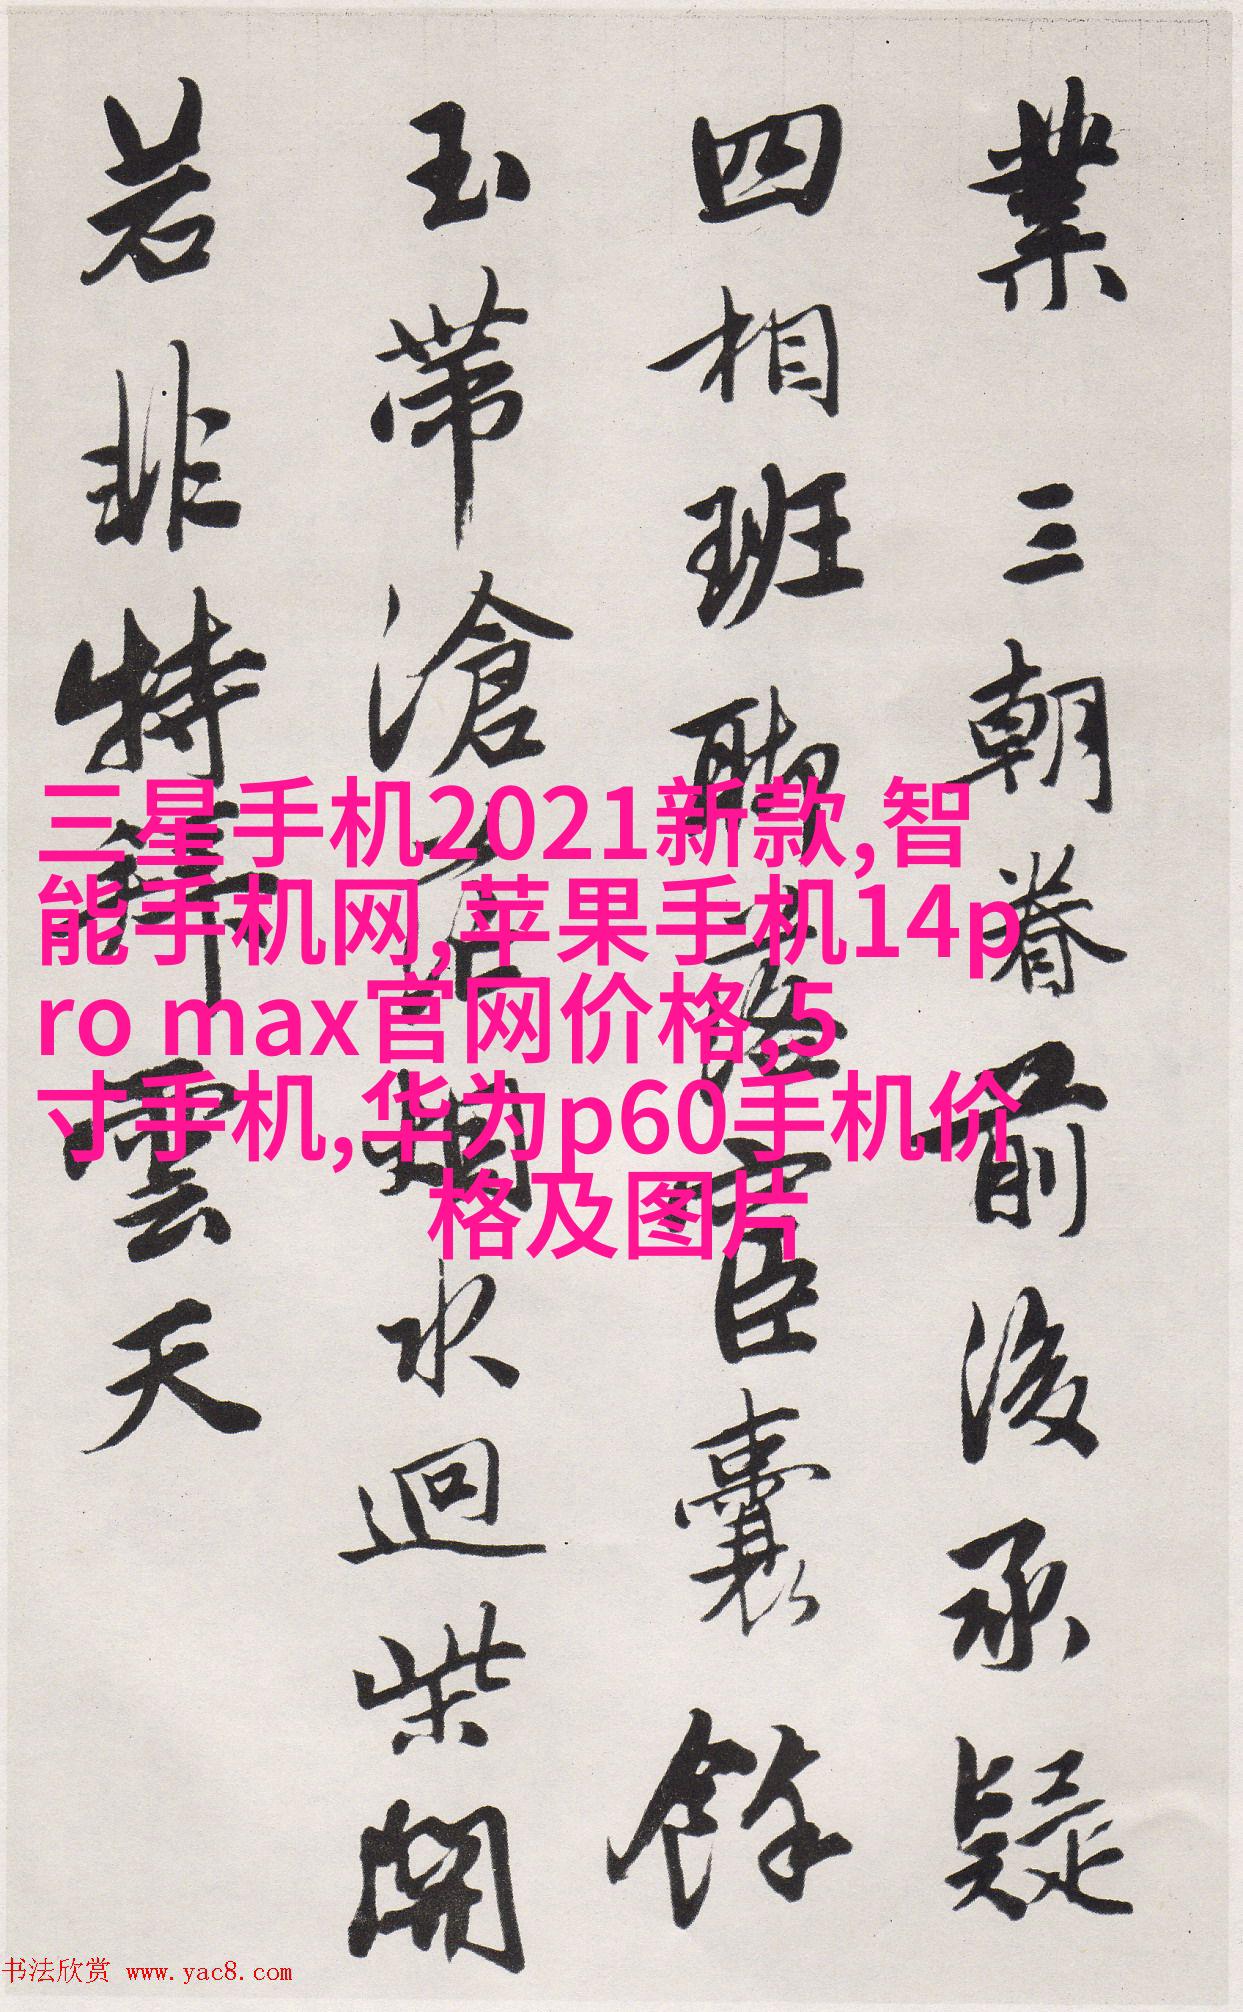 業 三朝眷前後承疑
四相班聯
臣囊餘
玉帶滄
水迴柴關
若非特
雲天
三星手机2021新款,智
能手机网,苹果手机14p
ro max官网价格,5
寸手机,华为p60手机价
格及图片
书法欣赏 www.yac8.com